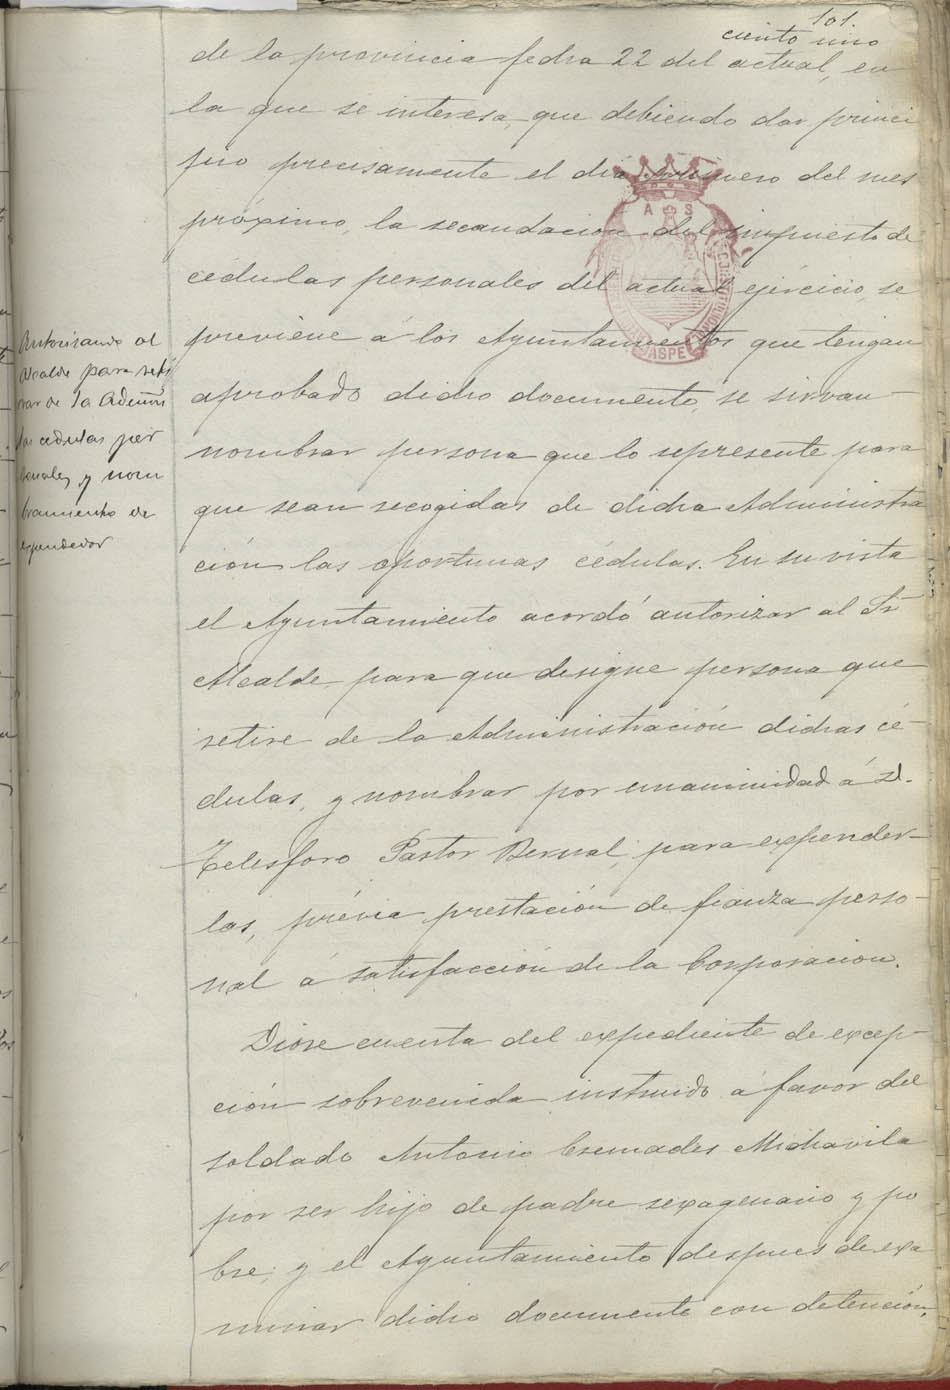 101.
ciento uno
de la provincia fecha 22 del actual, en
la que se interesa, que debiendo dar princi
pio precisamente el dia primero del mes
próximo, la recaudacion del impuesto de
cédulas personales del actual ejercicio, se
previene á los Ayuntamientos que tengan
aprobado dicho documento, se sirvan
nombrar persona que lo represente para
que sean recogidas de dicha Administra
ción las oportunas cédulas. En su vista
el Ayuntamiento acordó autorizar al Sr.
Alcalde para que designe persona que
retire de la Administración dichas cé-
dulas, y nombrar por unanimidad á D.
Telesforo Pastor Bernal, para expender-
las, prévia prestación de fianza perso-
nal á satisfacción de la Corporacion.
Diose cuenta del expediente de excep-
ción sobrevenida instruido á favor del
soldado Antonio Cremades Michavila
por ser hijo de padre sexagenario y po
bre; y el Ayuntamiento despues de exa
minar dicho documento con detención,
Autorisando al
Alcalde para reti
rar de la Admon
las cedulas per
sonales y nom
bramiento de
expendedor
A S
ASPE